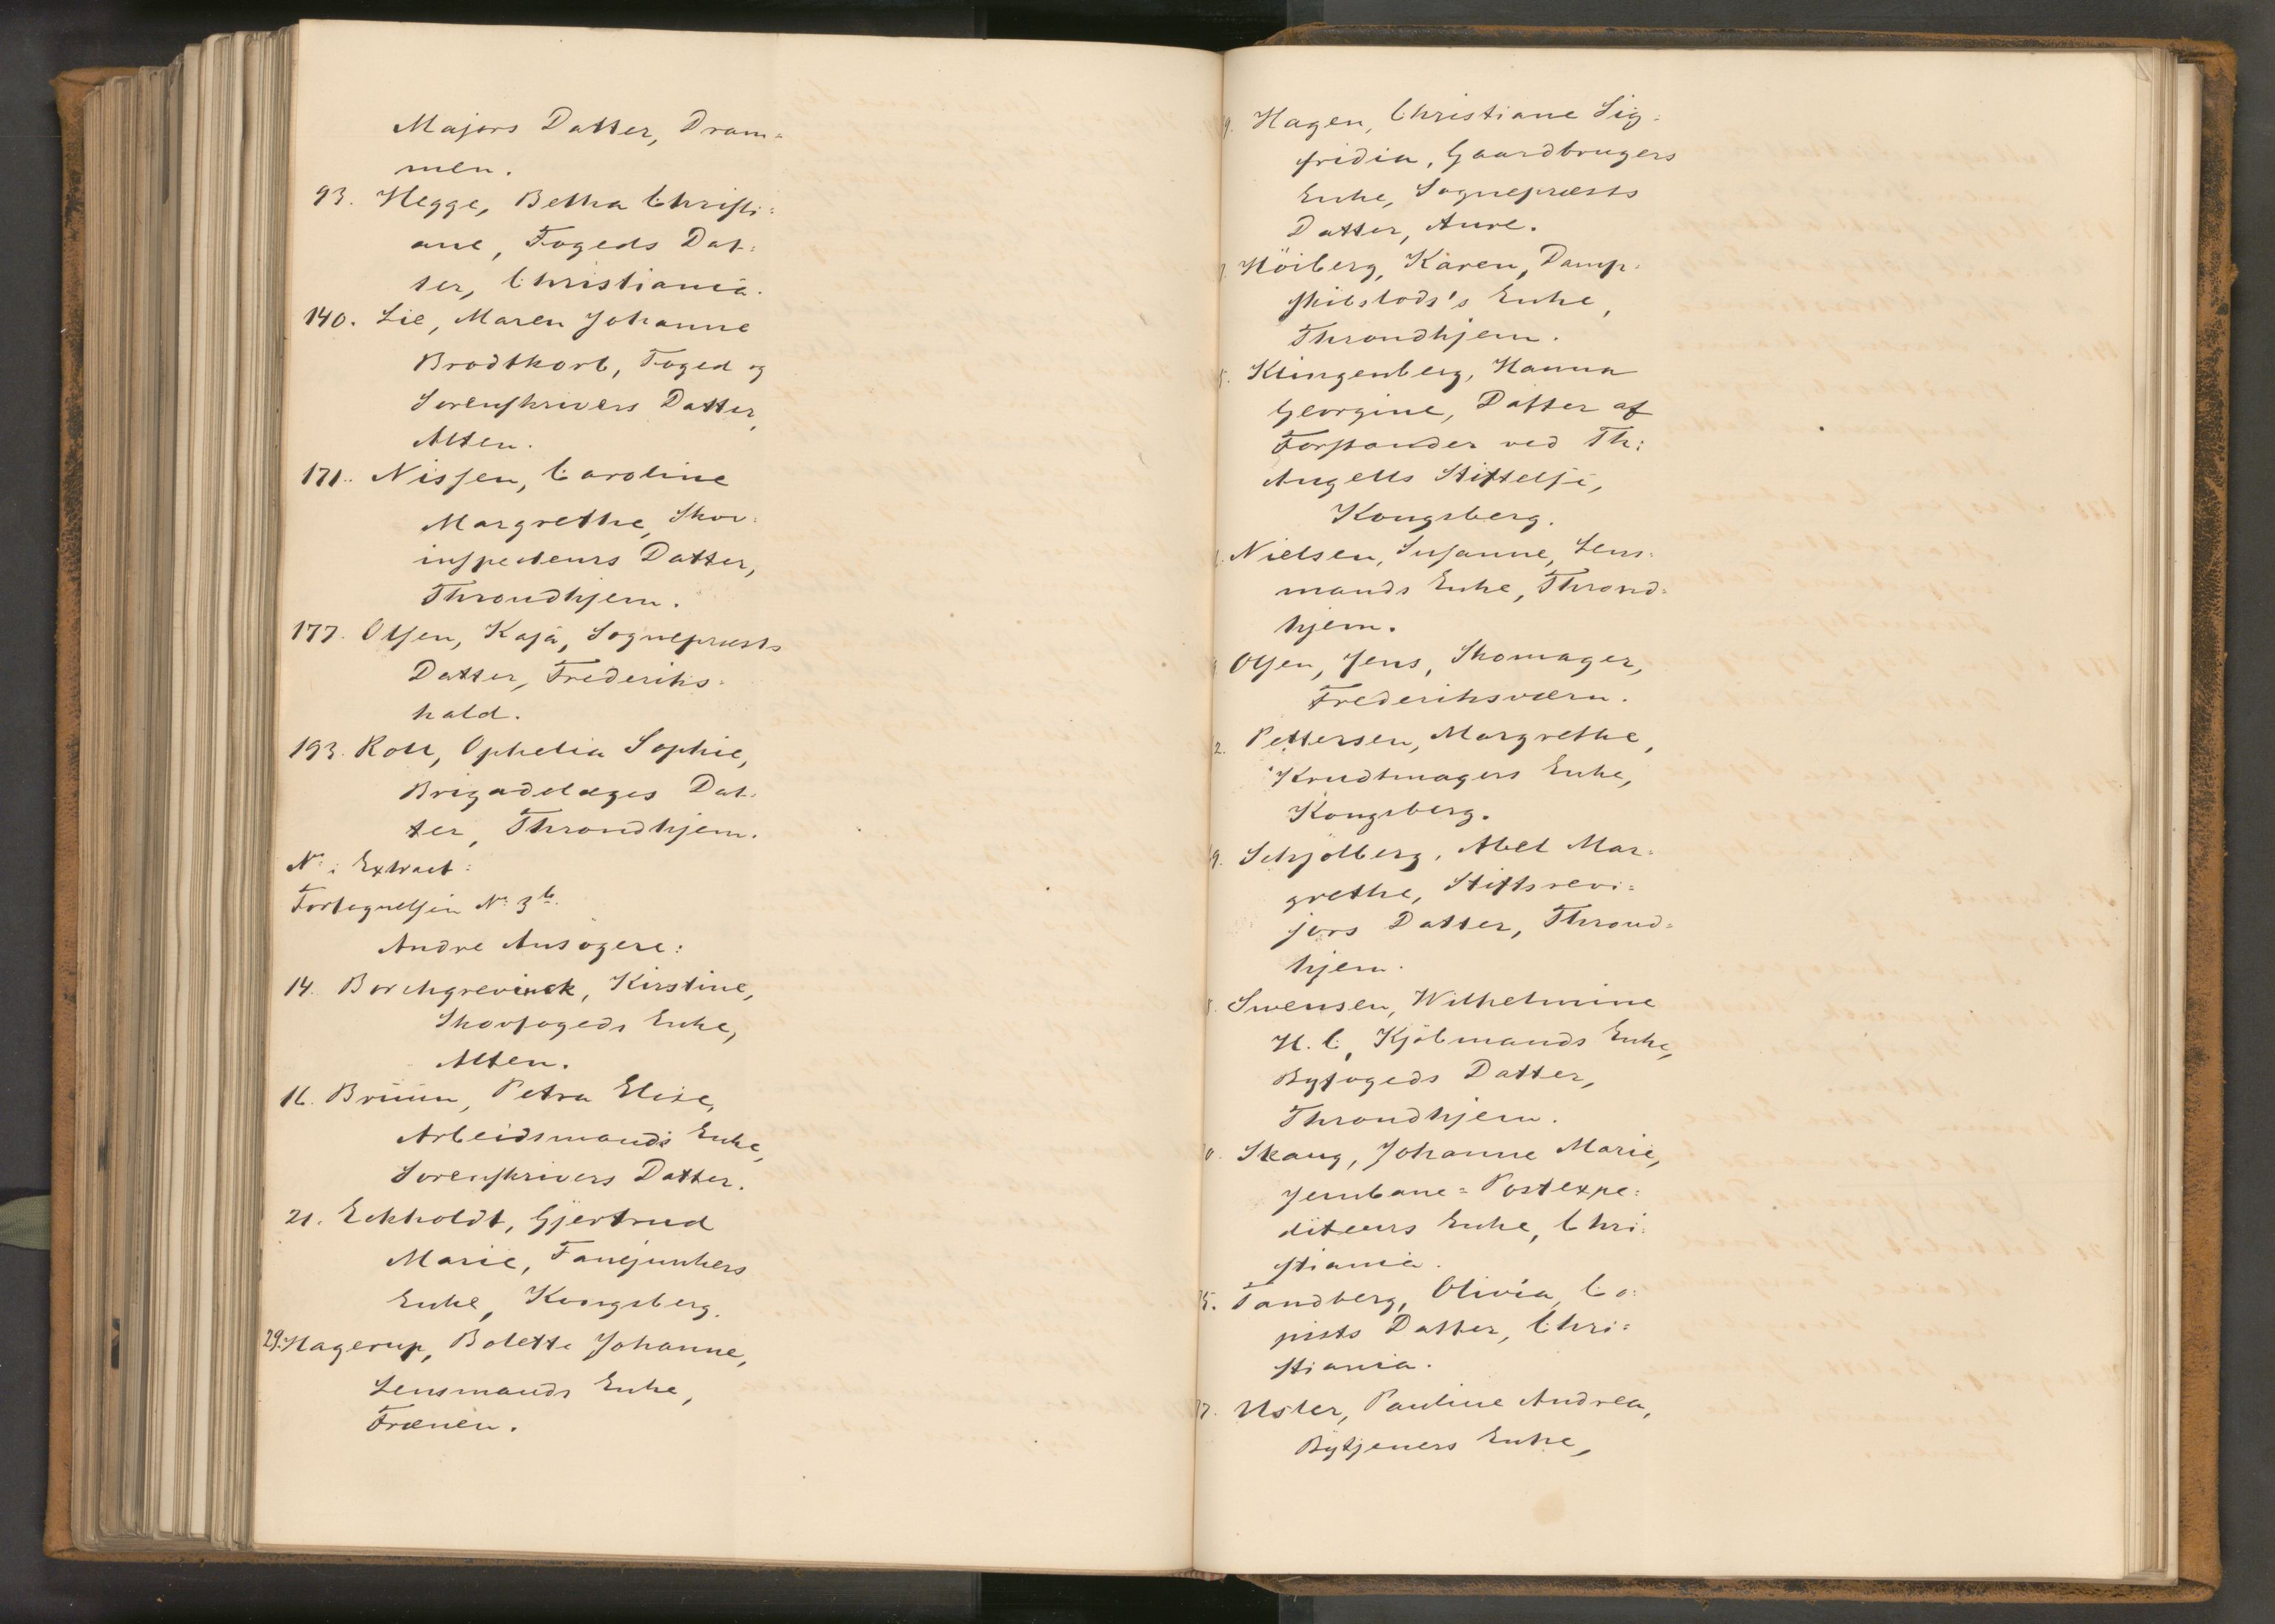 Majors Datter, Dram=
men.
93. Hegge, Betha Christi=
ane, Fogeds Dat=
ter, Christiania.
140. Lie, Maren Johanne
Brodtkorb, Foged og
Sorenskrivers Datter,
Alten.
171. Nissen, Caroline
Margrethe, Skov=
inspecteurs Datter,
Throndhjem.
177. Olsen, Kaja, Sognepræsts
Datter, Frederiks=
hald.
193. Roll, Ophelia Sophie,
Brigadelæges Dat=
ter, Throndhjem.
No i Extract:
Fortegnelsen No 3b.
Andre Ansøgere:
14. Borchgrevinck, Kirstine,
Skovfogeds Enke,
Alten.
16. Bruun, Petra Elise,
Arbeidsmands Enke,
Sorenskrivers Datter.
21. Eckholdt, Gjertrud
Marie, Fanejunkers
Enke, Kongsberg.
29. Hagerup, Bolette Johanne,
Lensmands Enke,
Frænen.
Hagen, Christiane Sig=
fridia, Gaardbrugers
Enke, Sognepræsts
Datter, Aure.
Höiberg, Karen, Damp=
skibslods's Enke,
Throndhjem.
Klingenberg, Hanna
Georgine, Datter af
Forstander ved Th:
Angells Stiftelse,
Kongsberg.
Nielsen, Susanne, Lens=
mands Enke, Thrond=
hjem.
Olsen, Jens, Skomager,
Frederiksværn.
2. Pettersen, Margrethe,
Krudtmagers Enke,
Kongsberg.
9. Schjölberg, Abel Mar=
grethe, Stiftsrevi=
sors Datter, Thrond=
hjem.
Svensen, Wilhelmine
H. C., Kjöbmands Enke,
Byfogeds Datter,
Throndhjem.
0. Skaug, Johanne Marie,
Jernbane=Postexpe=
diteurs Enke, Chri=
stiania.
5. Tandberg, Olivia, Co=
pists Datter, Chri=
stiania.
7. Usler, Pauline Andrea,
Bytjeners Enke,